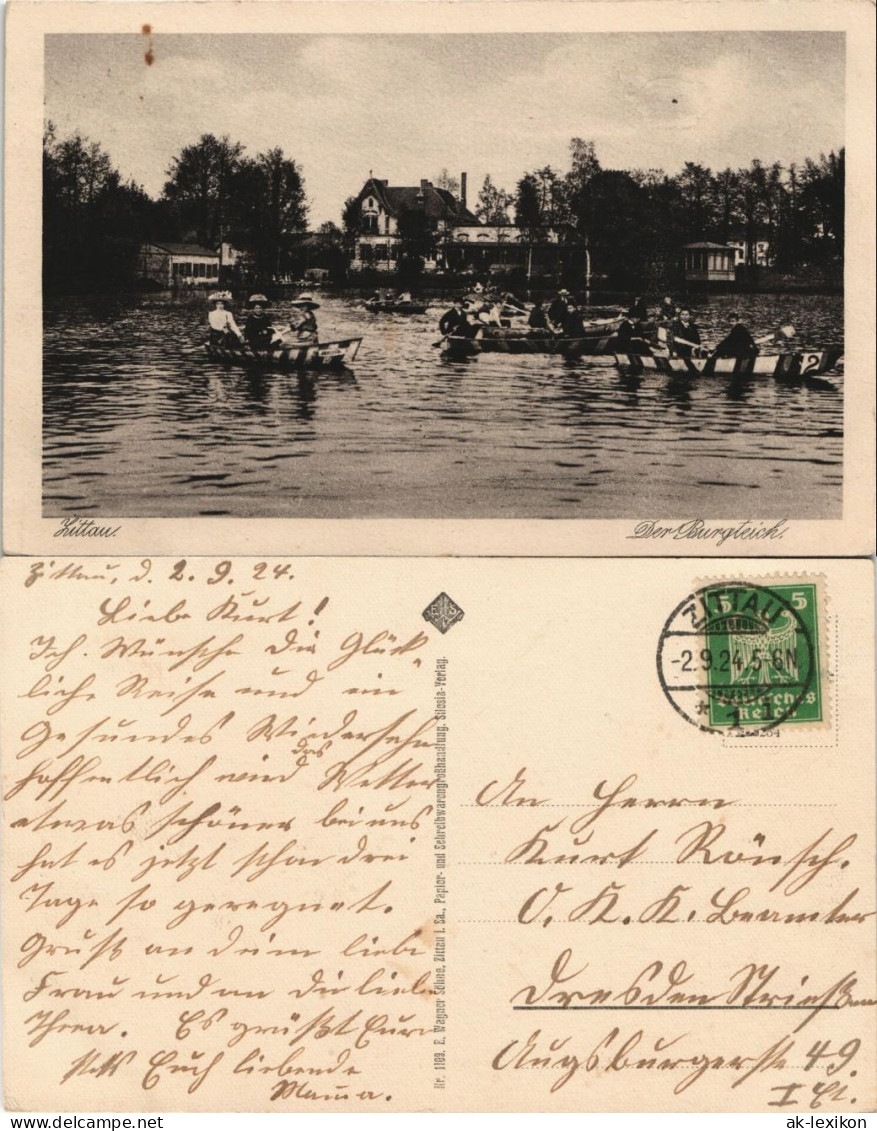 2
Zittau.
Der Burgteich.
Zittau, d. 2.9.24.
Liebe Kurt!
Ich Wünsche die Glück
liche Reise und ein
Gesundes Wiedersehn
hoffentlich wird das Wetter
etwas schöner bei uns
hat es jetzt schon drei
Tage so geregnet.
Gruß an dein liebe
Frau und an die liebe
Threa. Es grüßt Eure
stets Euch liebende
Mama.
Nr. 1109. E. Wagner Söhne, Zittau i. Sa., Papier- und Schreibwarengroßhandlung. Silesia-Verlag.
ZITTAU
-2.9.24.5-6N.
* 1 i
5 5
Deutsches
Reich
An Herrn
Kurt Rönsch.
O. K. K. Beamter
Dresden Strießen
Augsburgerstr 49.
I Et.
ak-lexikon